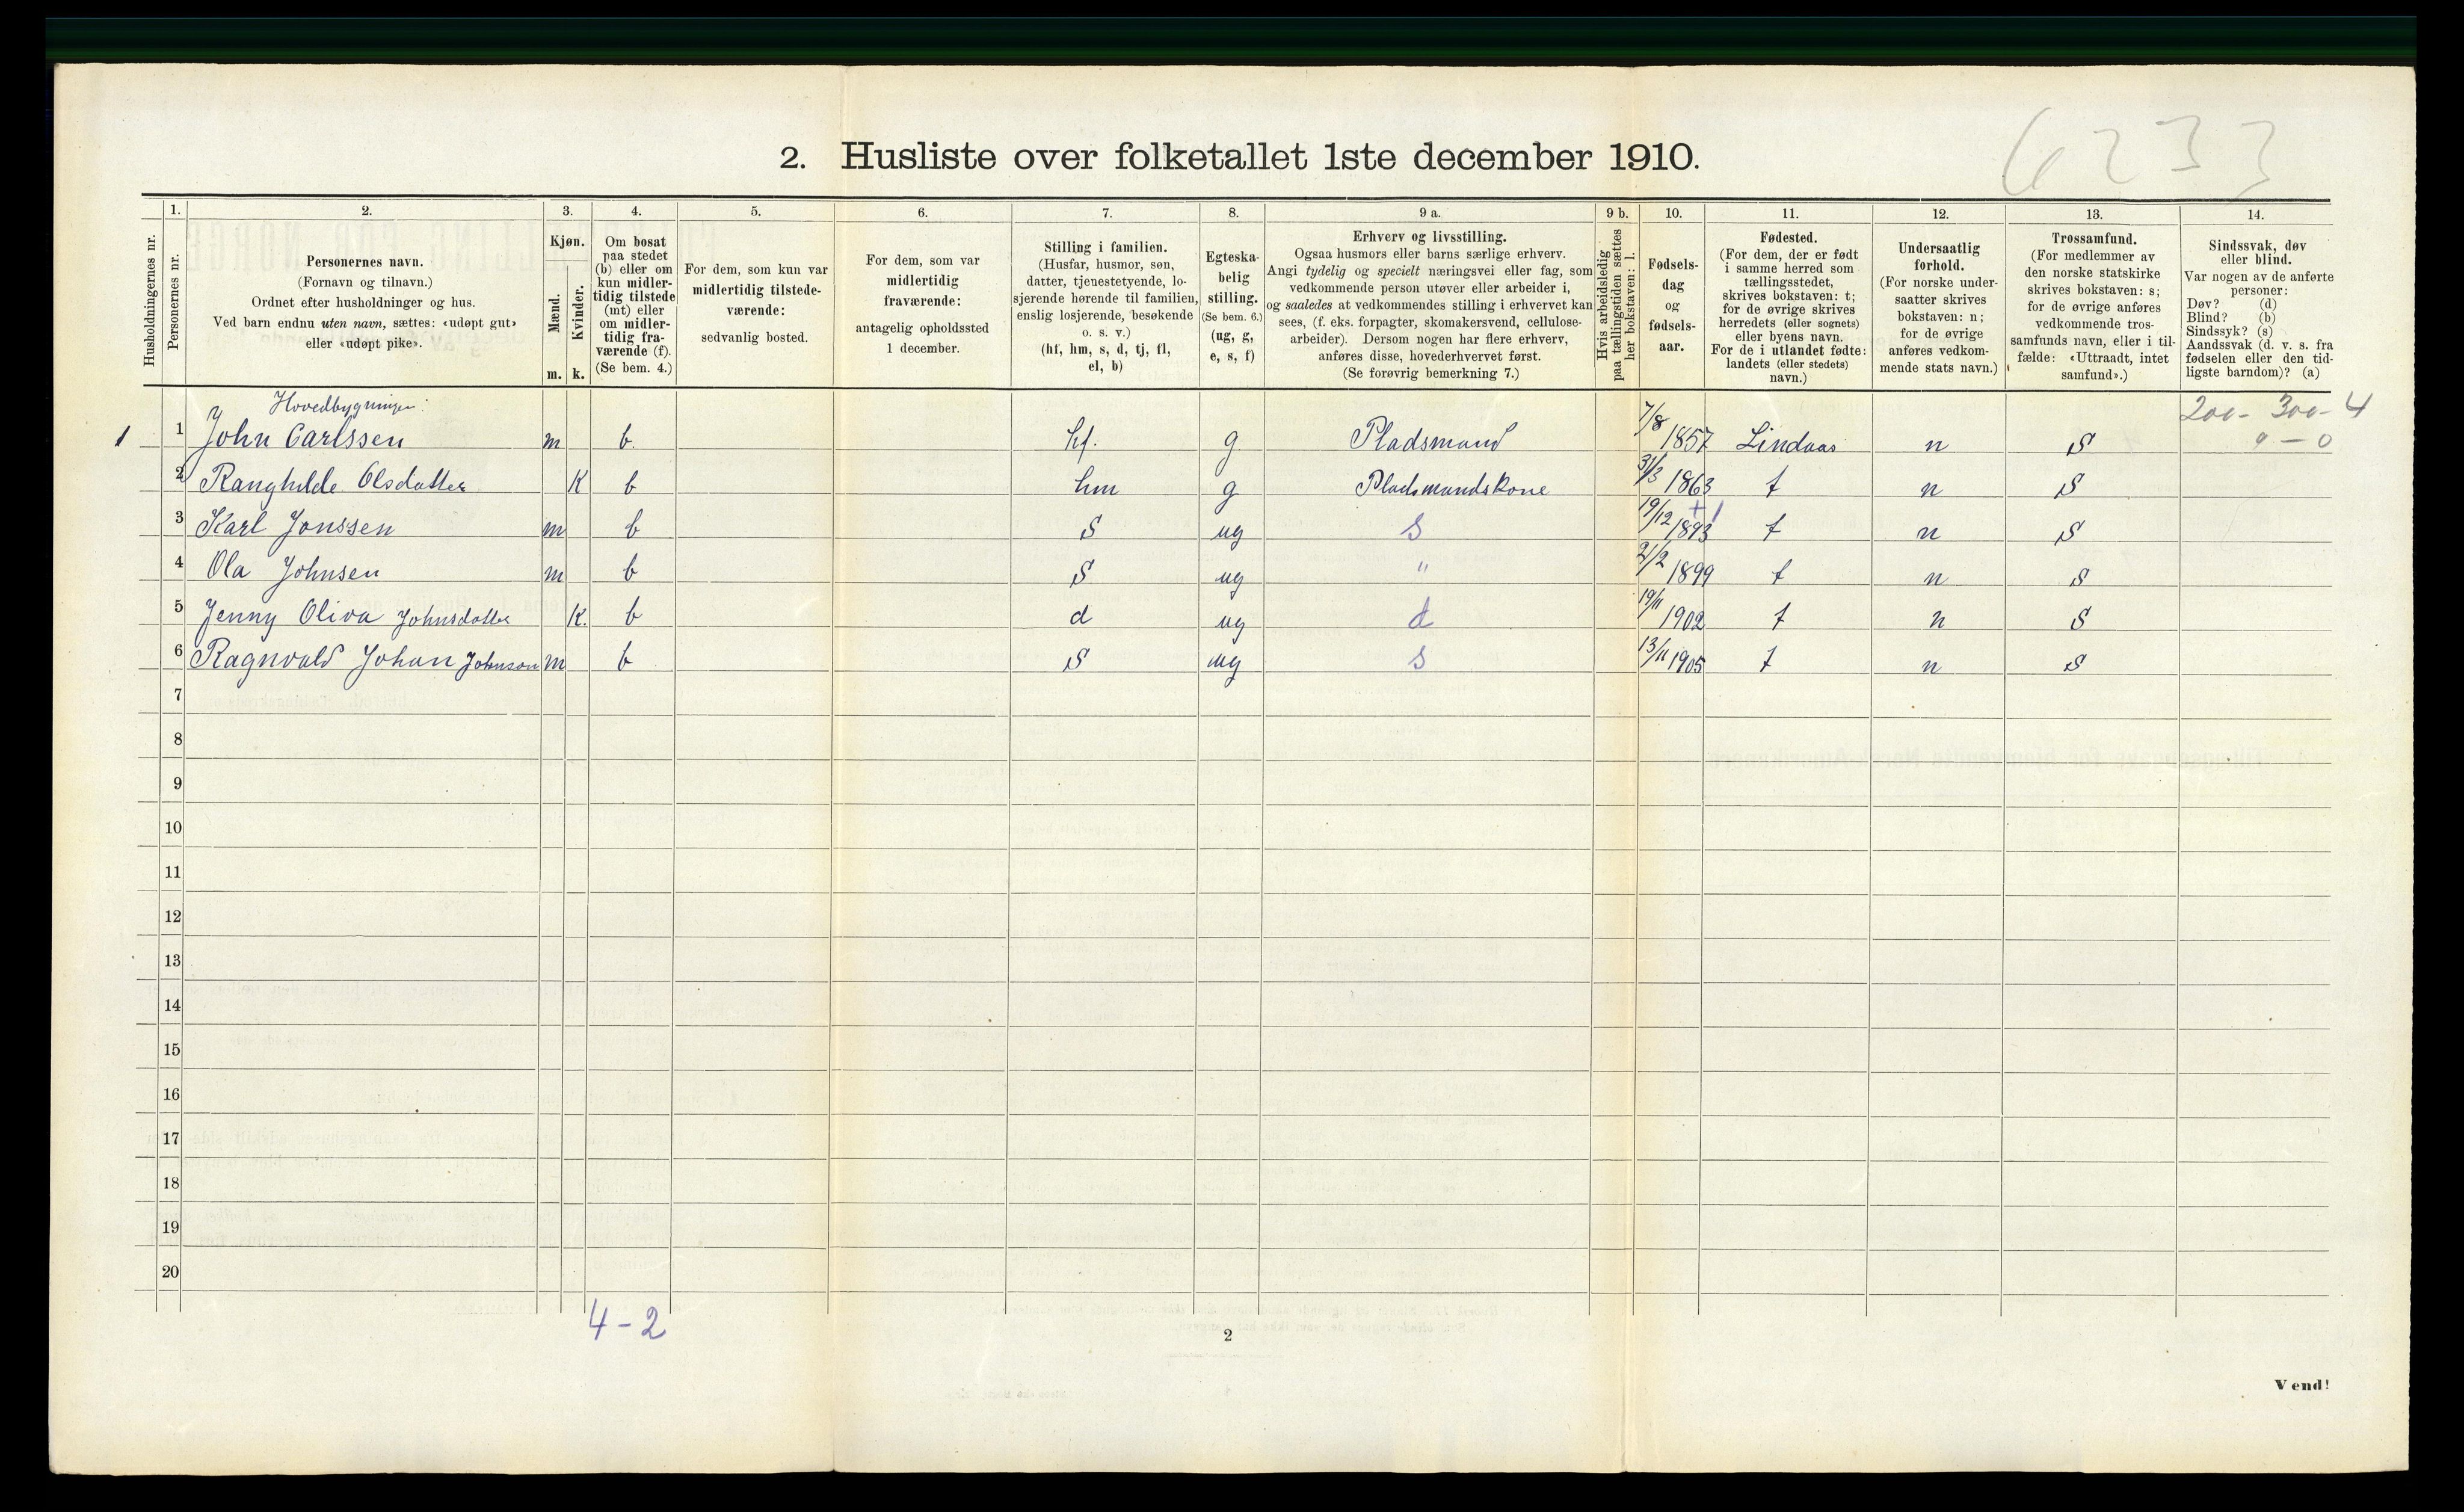 6233
2. Husliste over folketallet 1ste december 1910.
Husholdningernes nr.
1.
Personernes nr.
2.
Personernes navn.
(Fornavn og tilnavn.)
Ordnet efter husholdninger og hus.
Ved barn endnu uten navn, sættes: «udøpt gut»
eller «udøpt pike».
3.
Kjøn.
Mænd.
Kvinder.
m. k.
4.
Om bosat
paa stedet
(b) eller om
kun midler-
tidig tilstede
(mt) eller
om midler-
tidig fra-
værende (f).
(Se bem. 4.)
5.
For dem, som kun var
midlertidig tilstede-
værende:
sedvanlig bosted.
6.
For dem, som var
midlertidig
fraværende:
antagelig opholdssted
1 december.
7.
Stilling i familien.
(Husfar, husmor, søn,
datter, tjenestetyende, lo-
sjerende hørende til familien,
enslig losjerende, besøkende
o. s. v.)
(hf, hm, s, d, tj, fl,
el, b)
8.
Egteska-
belig
stilling.
(Se bem. 6.)
(ug, g,
e, s, f)
9 a.
Erhverv og livsstilling.
Ogsaa husmors eller barns særlige erhverv.
Angi tydelig og specielt næringsvei eller fag, som
vedkommende person utøver eller arbeider i,
og saaledes at vedkommendes stilling i erhvervet kan
sees, (f. eks. forpagter, skomakersvend, cellulose-
arbeider). Dersom nogen har flere erhverv,
anføres disse, hovederhvervet først.
(Se forøvrig bemerkning 7.)
9 b.
Hvis arbeidsledig
paa tællingstiden sættes
her bokstaven: l.
10.
Fødsels-
dag
og
fødsels-
aar.
11.
Fødested.
(For dem, der er født
i samme herred som
tællingsstedet,
skrives bokstaven: t;
for de øvrige skrives
herredets (eller sognets)
eller byens navn.
For de i utlandet fødte:
landets (eller stedets)
navn.)
12.
Undersaatlig
forhold.
(For norske under-
saatter skrives
bokstaven: n;
for de øvrige
anføres vedkom-
mende stats navn.)
13.
Trossamfund.
(For medlemmer av
den norske statskirke
skrives bokstaven: s;
for de øvrige anføres
vedkommende tros-
samfunds navn, eller i til-
fælde: «Uttraadt, intet
samfund».)
14.
Sindssvak, døv
eller blind.
Var nogen av de anførte
personer:
Døv? (d)
Blind? (b)
Sindssyk? (s)
Aandssvak (d. v. s. fra
fødselen eller den tid-
ligste barndom)? (a)
Hovedbygningen
200- 300- 4
1 1 John Carlssen m b. hf. g Pladsmand 7/8 1857 Lindaas n S 0 - 0
2 Ranghilde Olsdatter K b hm g Pladsmandskone 31/3 1863 t n S
3 Karl Jonssen m b S ug s 19/12 1893 + 1 t n S
4 Ola Johnsen m b S ug " 21/2 1899 t n S
5 Jenny Oliva Johnsdatter K. b d ug d 19/11 1902 t n S
6 Ragnvald Johan Johnson m b S ug s 13/11 1905 t n S
7
8
9
10
11
12
13
14
15
16
17
18
19
20
4-2
2
Vend!